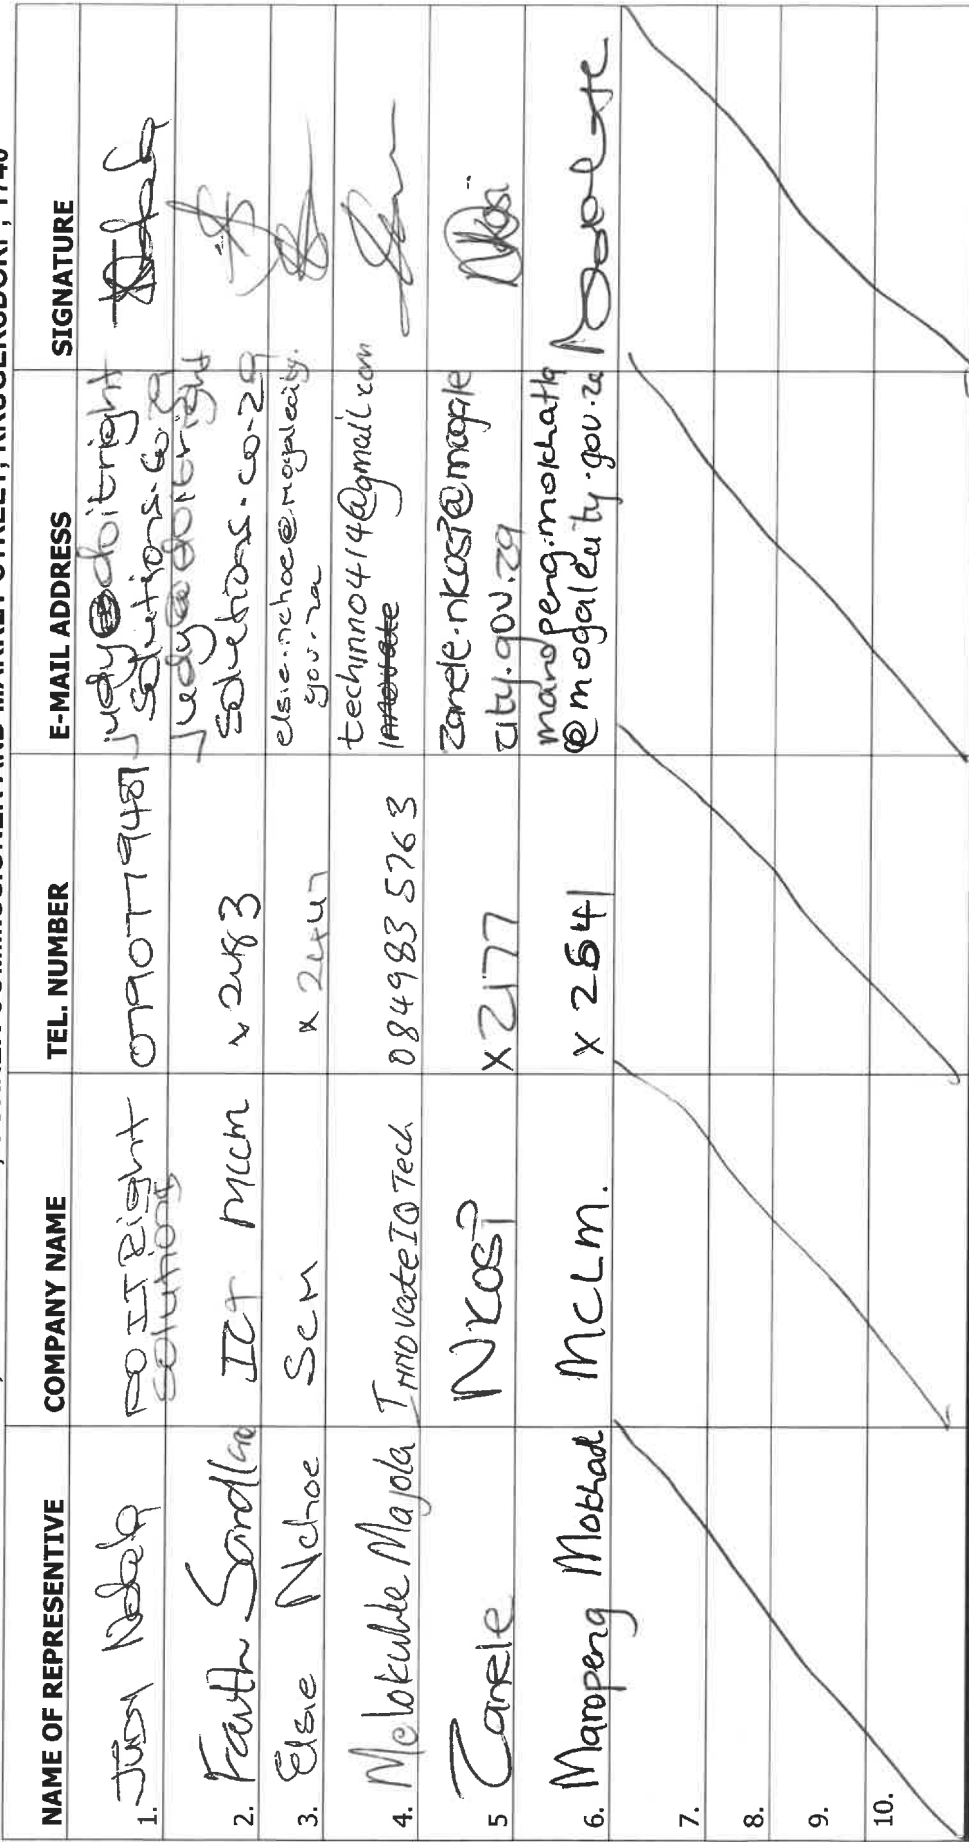 COMMISSIONER AND MARKET STREET, KRUGERSDORP, 1740
NAME OF REPRESENTIVE COMPANY NAME TEL. NUMBER E-MAIL ADDRESS SIGNATURE
1. Judy DOITRight 0790779487 judy@doitright
Solutions solutions.co.za
2. Faith ICT x2483 judy@doitright
solutions.co.za
3. Elsie Nchoe SCM x 2447 elsie.nchoe@mogalecity.
gov.za
4. Mdlokulke Majola InnovateIQ Tech 084983 5763 techinno414@gmail.com
innovate
5 Zanele Nkosi x2177 zanele.nkosi@mogale
city.gov.za Nkosi
6. Maropeng Mokhatl MCLM. x 2541 maropeng.mokhatla
@mogalecity.gov.za
7.
8.
9.
10.